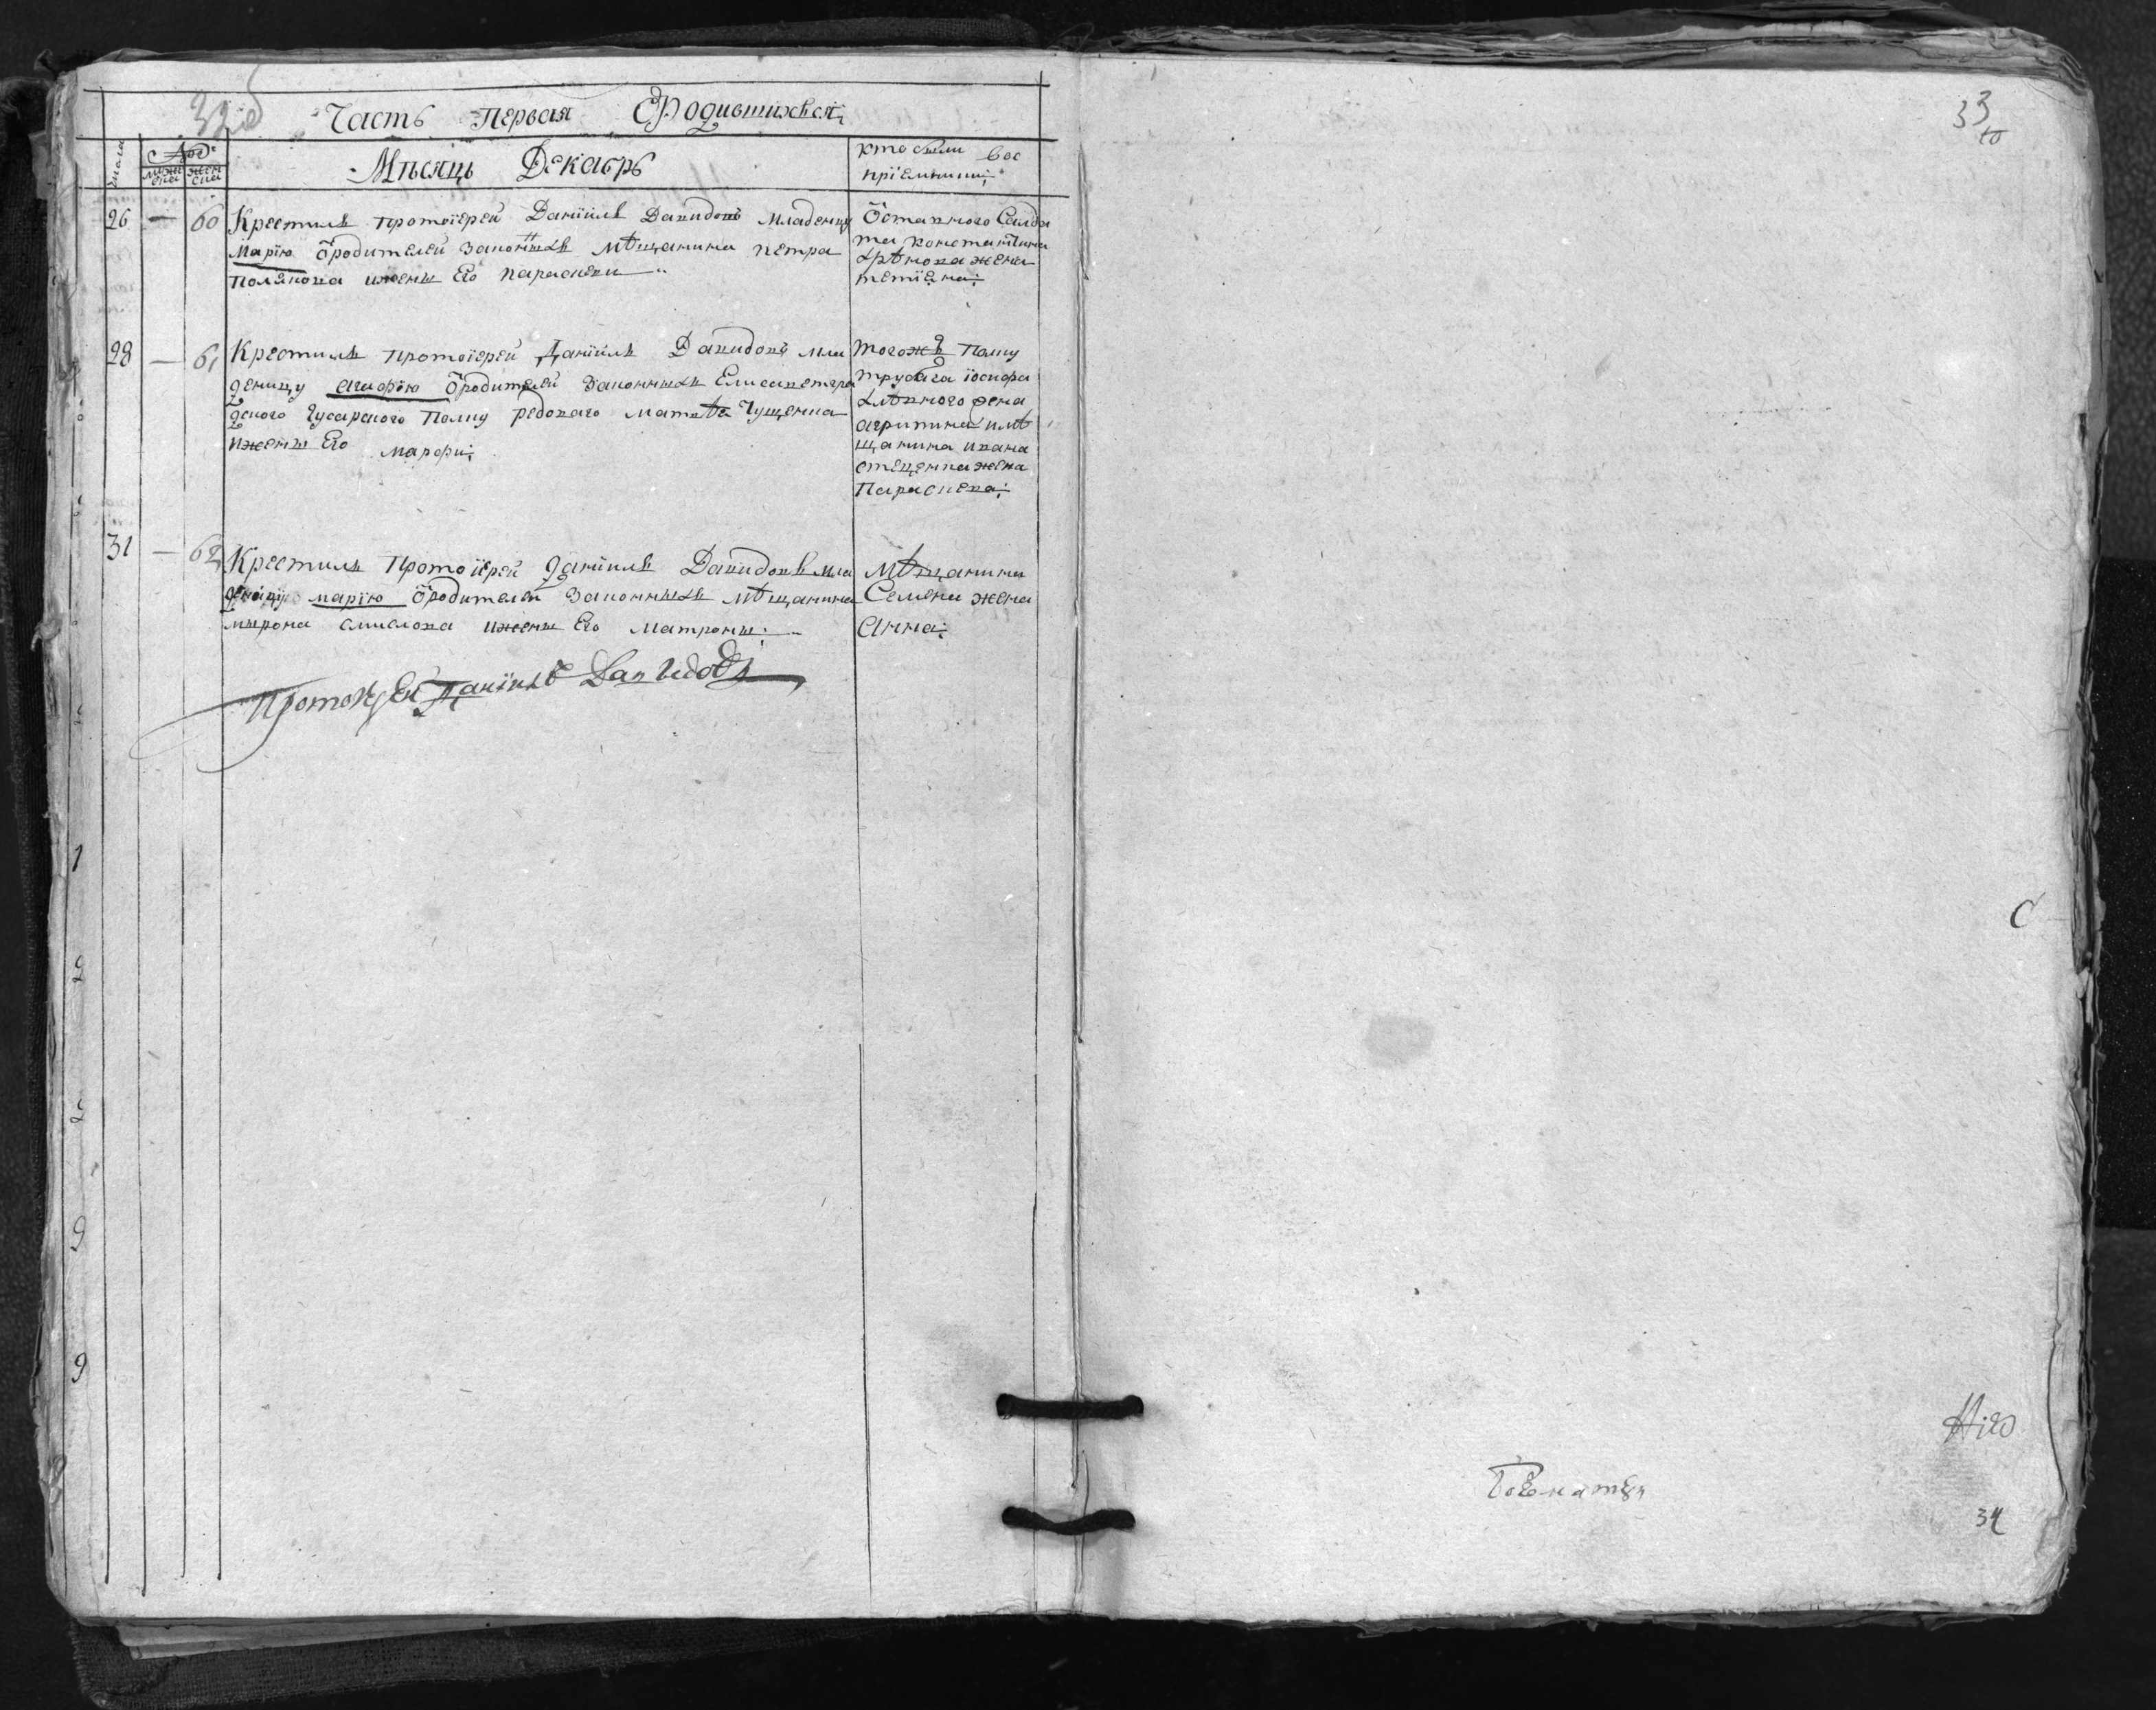 32об
Часть Первая Ородившихся
числа
Мѣсяць Декабрь
Кто были вос
пріемники
26 — 60 Крестилъ протоїерей Даніилъ Давидовъ младенцу
Марію ѿродителей законныхъ мѣщанина петра
Полякова ижены Его параскеви
Ѿставного Салда
та константина
жена
28 — 61 Крестилъ протоїерей Даніилъ Давидовъ мла
деницу агафію ѿродителей законныхъ Елисаветгра
дского Гусарского Полку редоваго Матвѣя
ижены Его марфи
тогожъ Полку
трубача їосифа
жена
агрипина имѣ
щанина ивана
стеценка жена
Параскева
31 — 62 Крестилъ Протоїерей даніилъ Давидовъ мла
деницу марію ѿродителей законныхъ мѣщанина
мирона ижены Его матроны
мѣщанина
Семена жена
Анна
Протоїерей Даніилъ Давидовъ
33
34